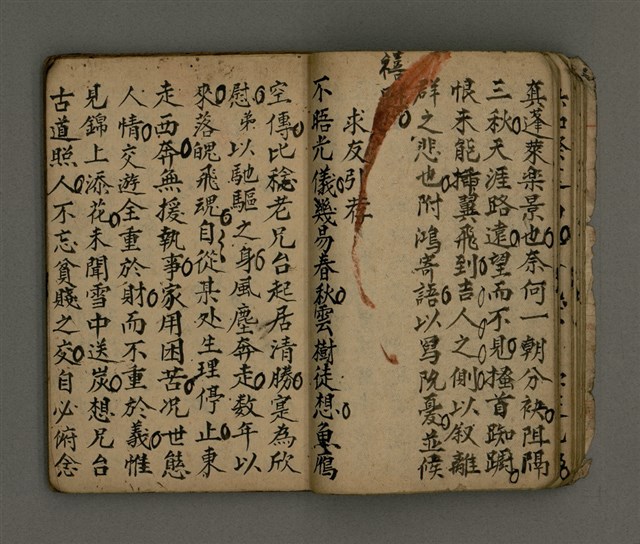 冀蓬萊樂景也奈何一朝分袂阻隔
三秋天涯路遠望而不見搔首踟躕
恨未能插翼飛到吉人之側以叙離
群之悲也附鴻寄語以罵阮憂並候
禧
求友引荐
不晤光儀幾易春秋雲樹徒想魚鴈
空傳比稔老兄台起居清勝寔為欣
慰弟以馳驅之身風塵奔走数年以
來落魄飛魂自從某处生理停止東
走西奔無援執事家用困苦况世態
人情交遊全重於財而不重於義惟
見錦上添花未聞雪中送炭想兄台
古道照人不忘貧賤之交自必俯念